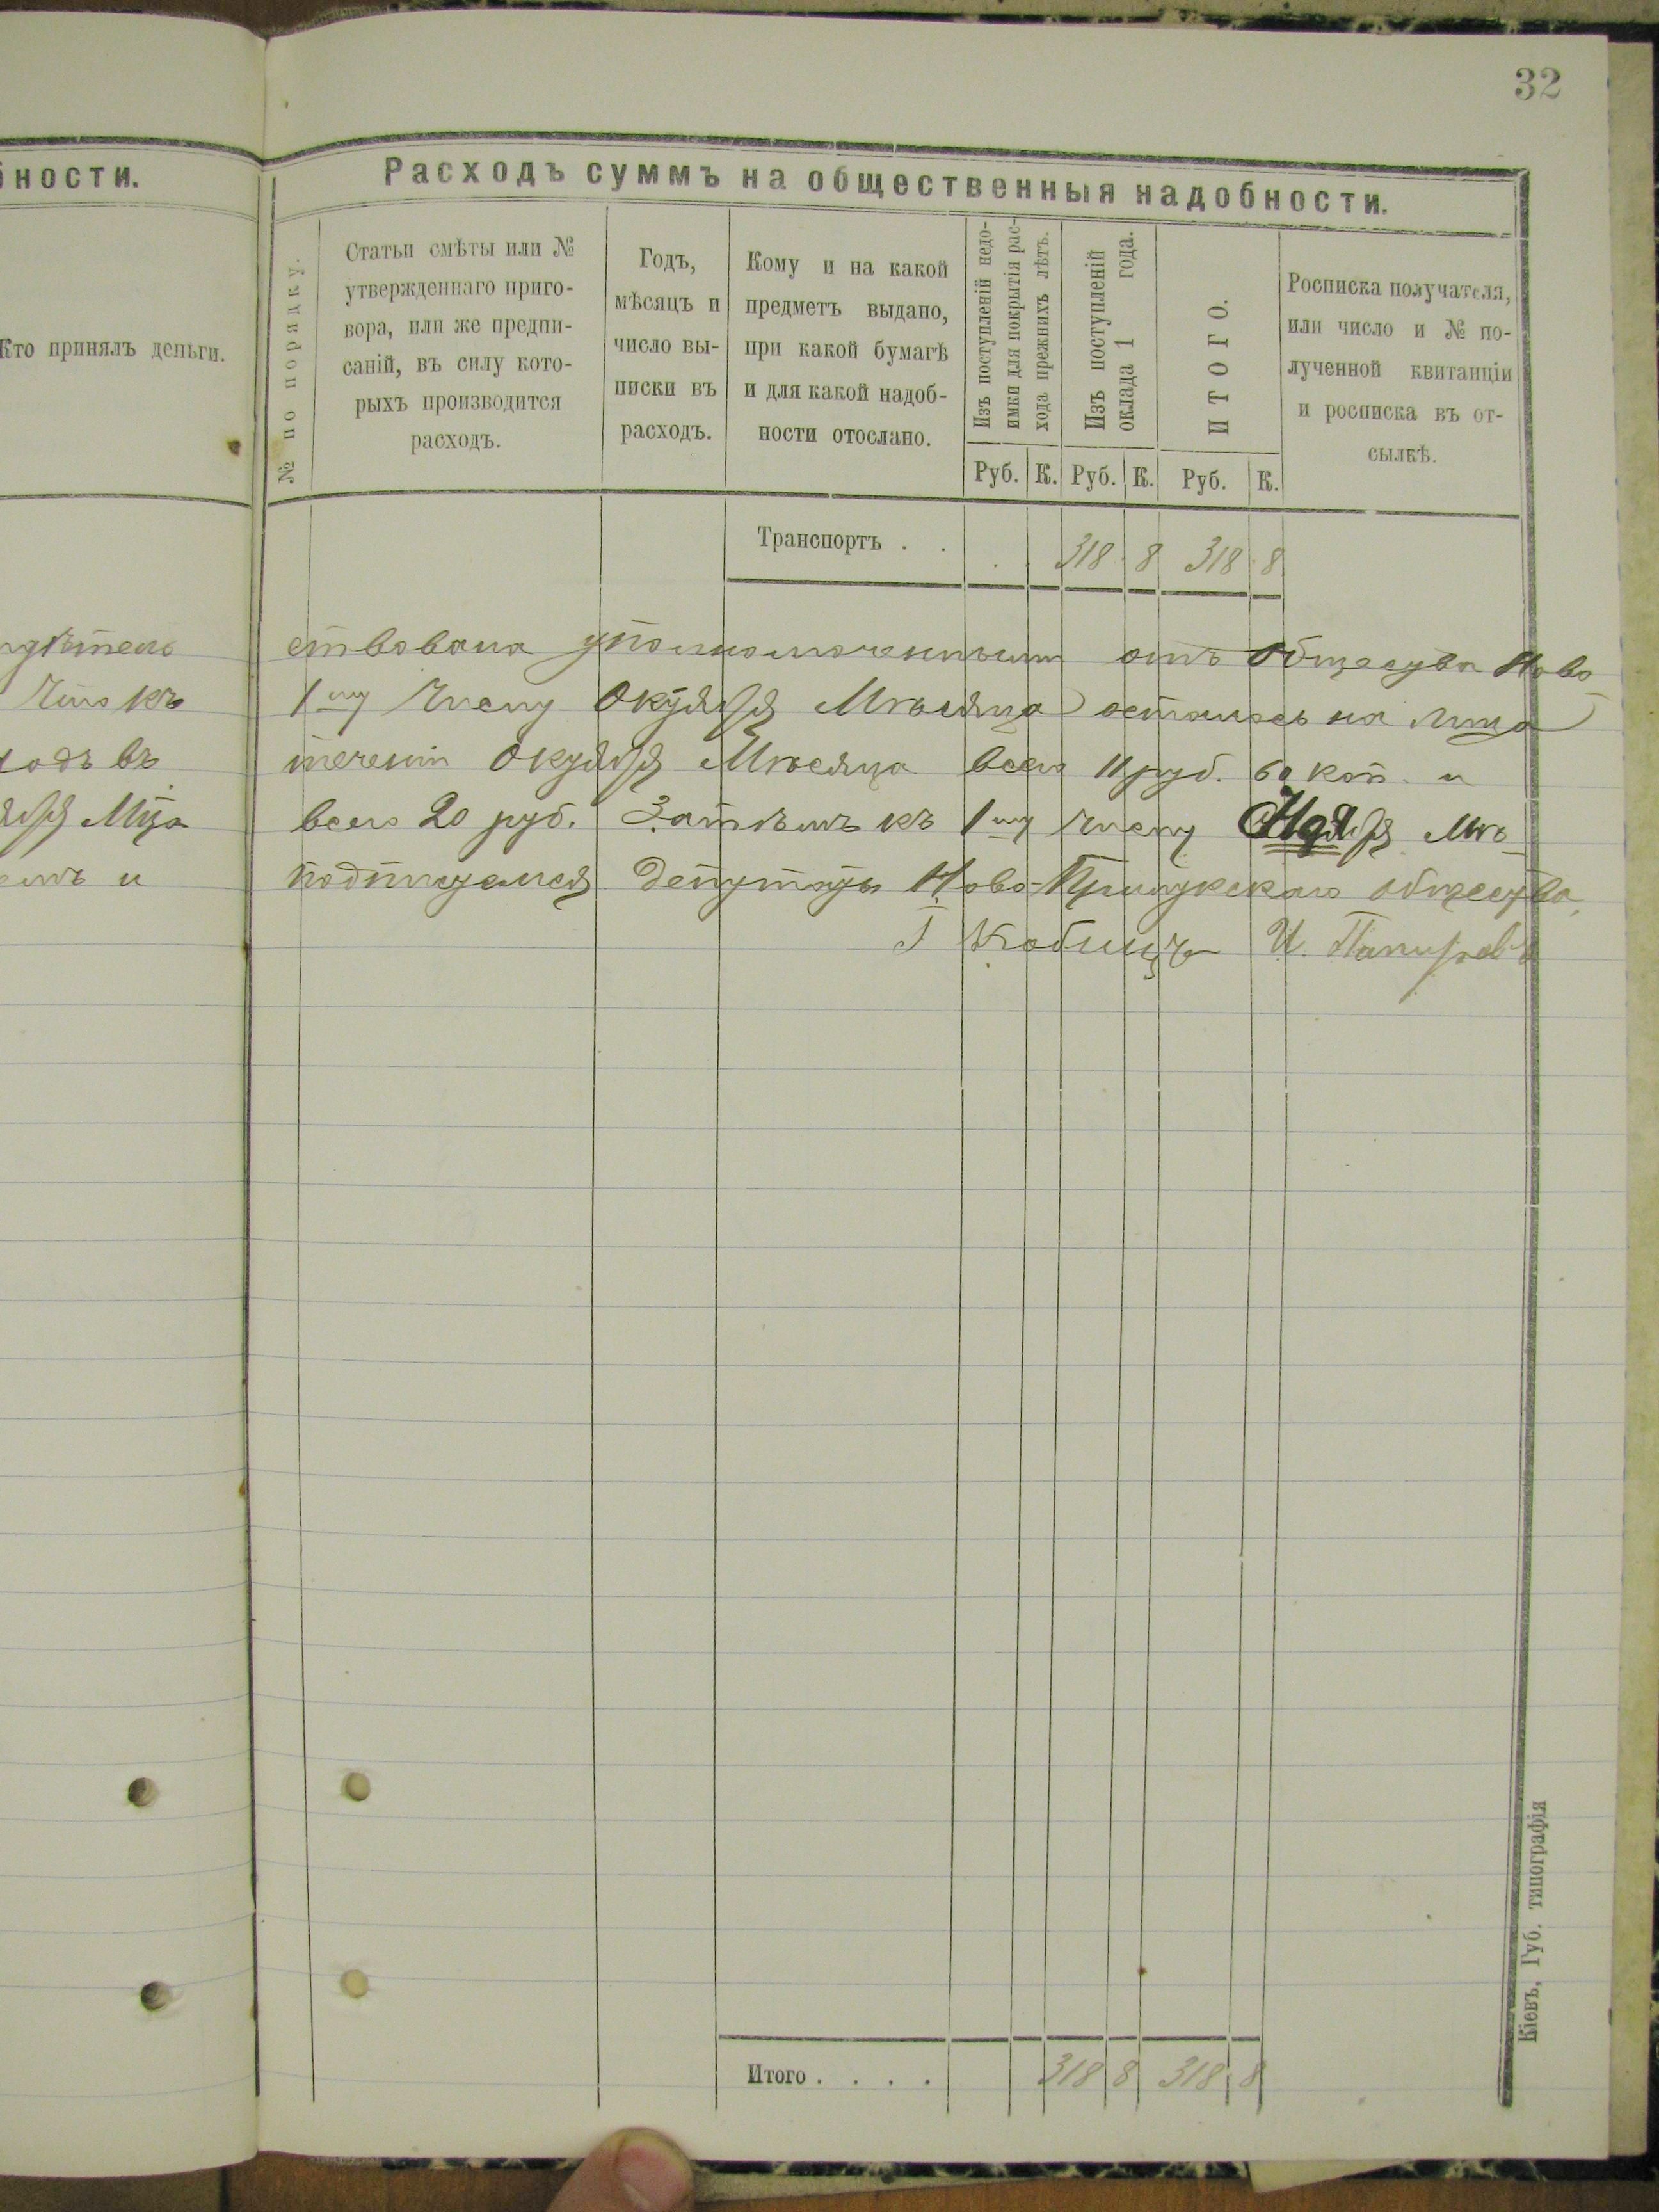 32
бности.
Кто принялъ деньги.
Расходъ суммъ на общественныя надобности.
№ по порядку.
Статьи смѣты или №
утвержденнаго приго-
вора, или же предпи-
саній, въ силу кото-
рыхъ производится
расходъ.
Годъ,
мѣсяцъ и
число вы-
писки въ
расходъ.
Кому и на какой
предметъ выдано,
при какой бумагѣ
и для какой надоб-
ности отослано.
Изъ поступленій недо-
имки для покрытія рас-
хода прежнихъ лѣтъ.
Изъ поступленій
оклада 1 года.
ИТОГО.
Росписка получателя,
или число и № по-
лученной квитанціи
и росписка въ от-
сылкѣ.
Руб. К. Руб. К. Руб. К.
Транспортъ . . 318 8 318 8
ствована уполномоченными отъ Общества Ново
что къ 1му числу Октября Мѣсяца осталось на лицо
ходъ въ теченіи Октября Мѣсяца всего 11 руб. 60 коп. и
Мца всего 20 руб. Затѣмъ къ 1му числу Ноября Мѣ
и подписуемся депутаты Ново-Прилукскаго общества,
И.
Итого . . . . 318 8 318 8
Кіевъ, Губ. типографія